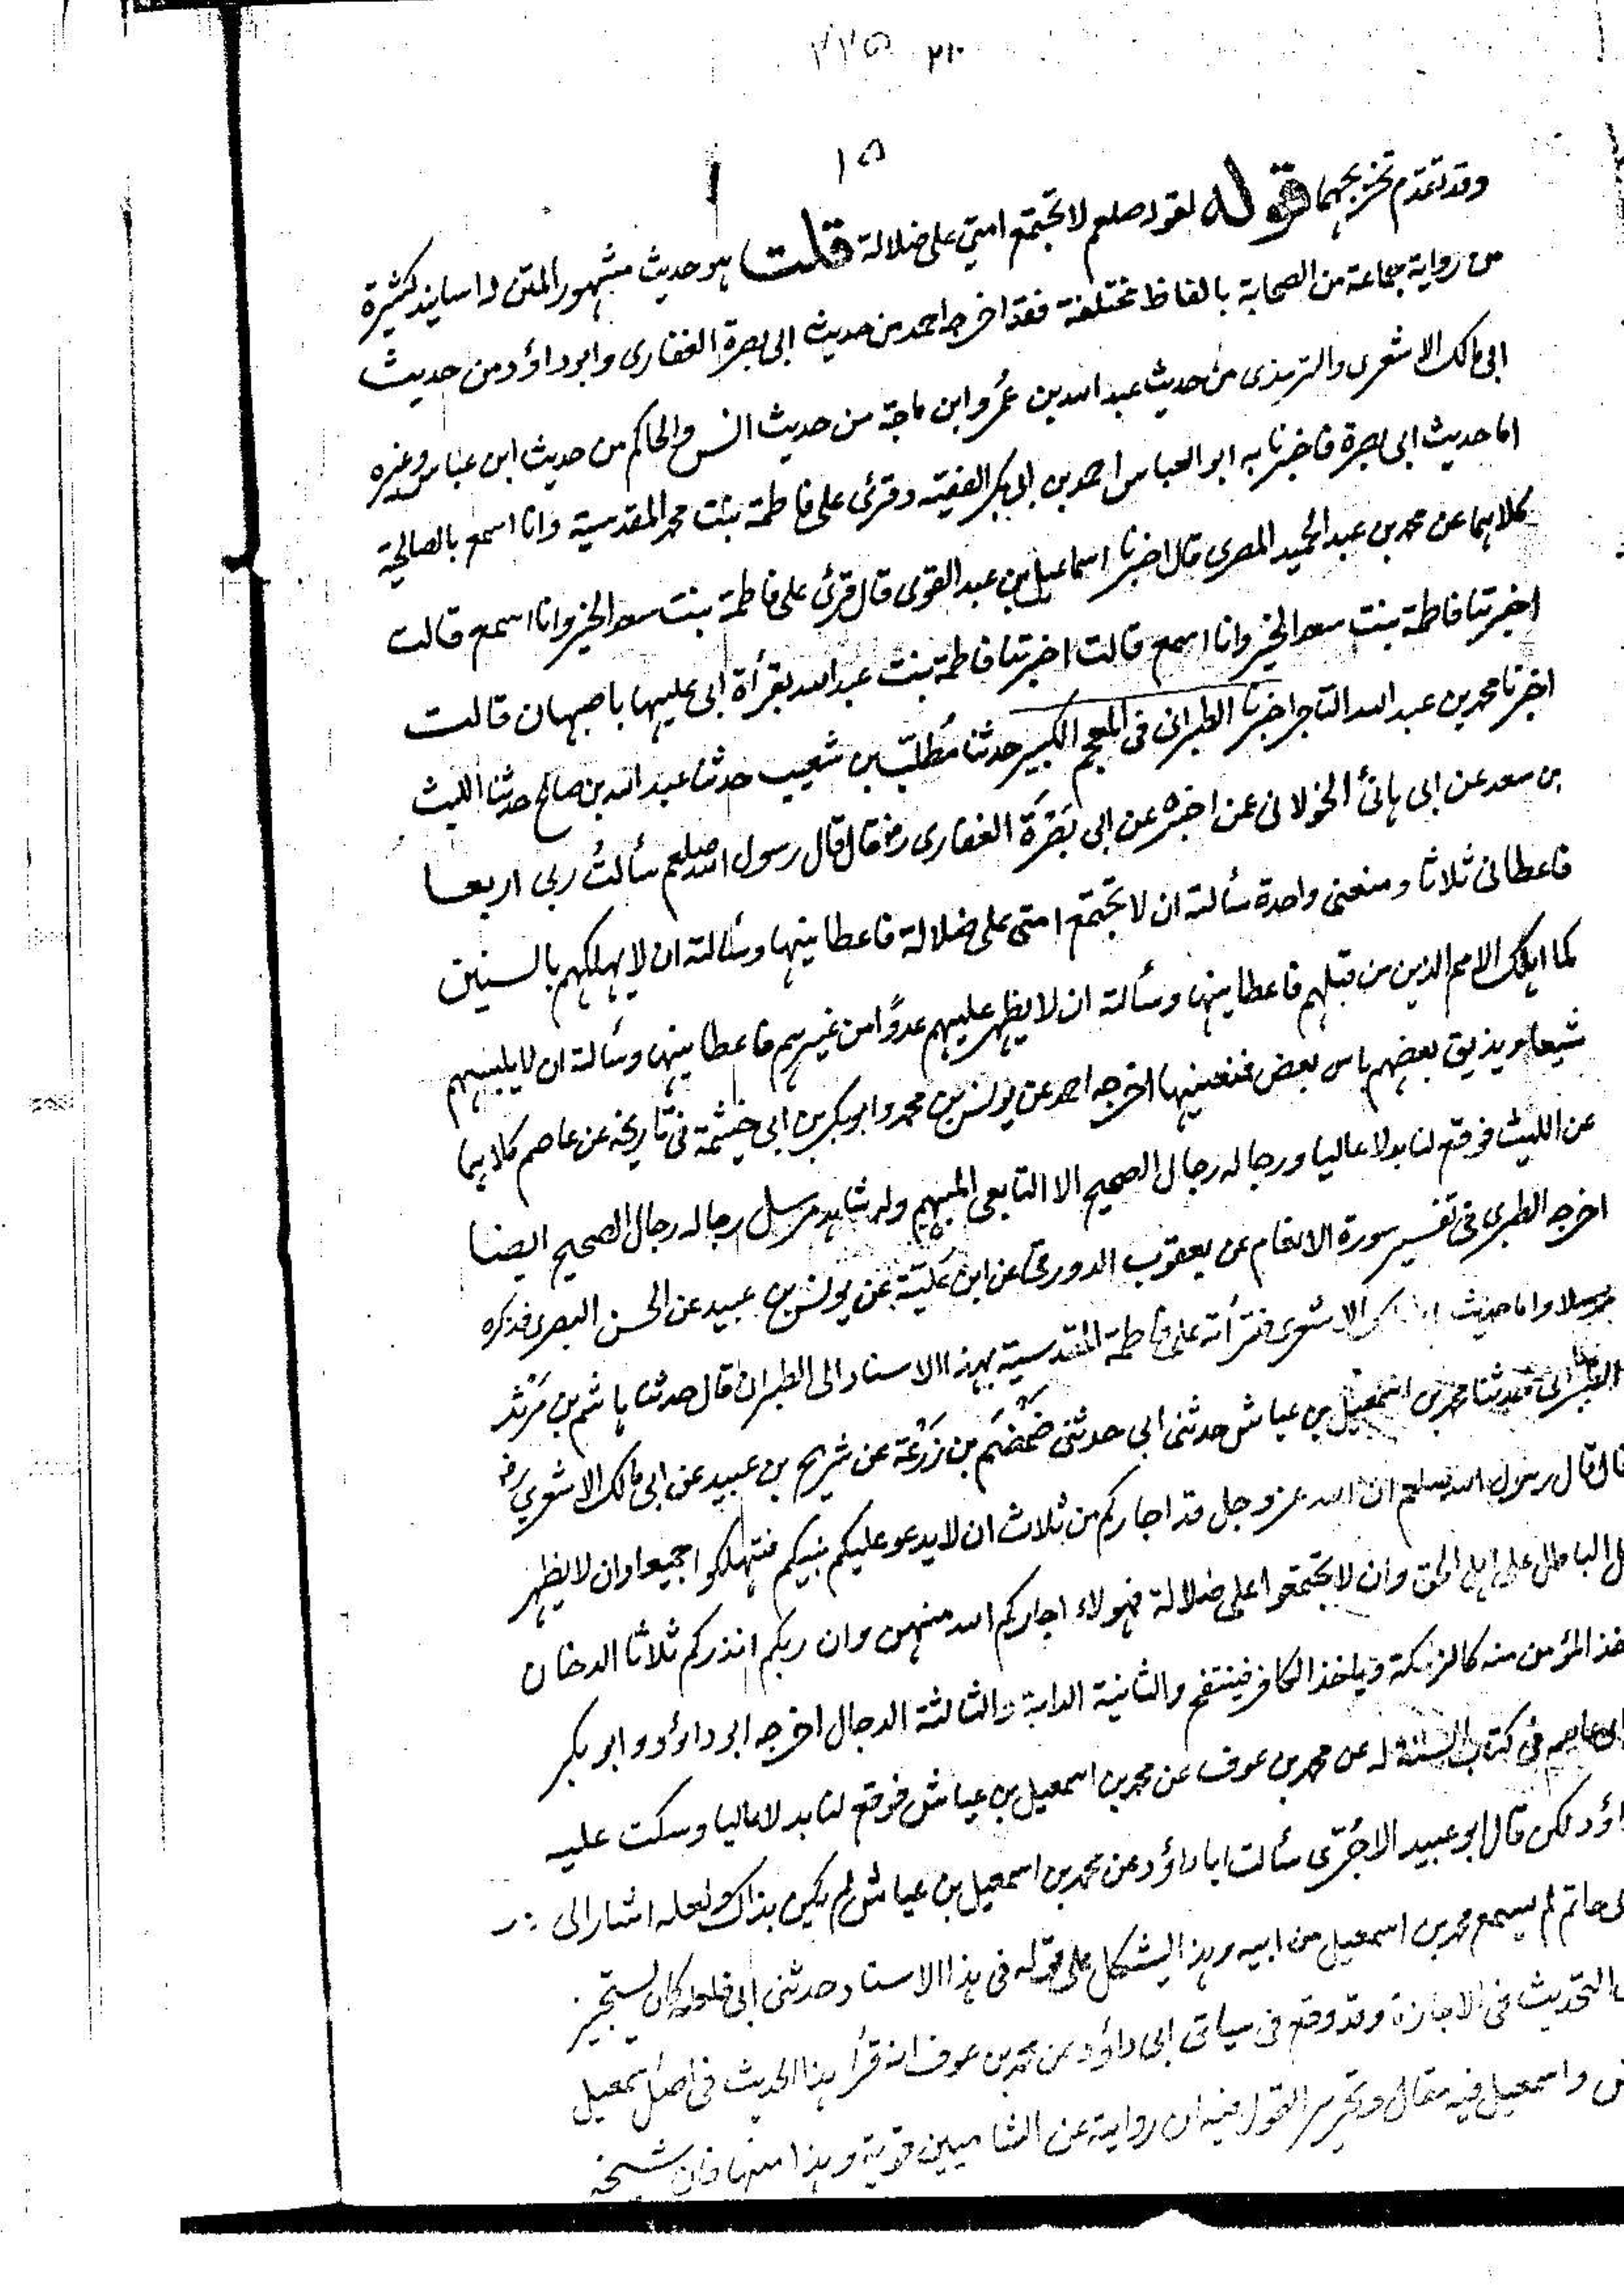 ٢٢٥ ٢١٠
١٥
وقد تقدم تخريجهما قوله لقوله صلعم لا تجتمع امتي على ضلالة قلت هو حديث مشهور المتن له اسانيد كثيرة
من رواية جماعة من الصحابة بالفاظ مختلفة فقد اخرجه احمد من حديث ابى بصرة الغفارى وابو داؤد من حديث
ابى مالك الاشعرى والترمذى من حديث عبد الله بن عمر وابن ماجة من حديث انس والحاكم من حديث ابن عباس وغيره
اما حديث ابى بصرة فاخبرنا به ابو العباس احمد بن ابى بكر الفقيه وقرئ على فاطمة بنت محمد المقدسية وانا اسمع بالصالحية
كلاهما عن محمد بن عبد الحميد المصرى قال اخبرنا اسماعيل بن عبد القوى قال قرئ على فاطمة بنت سعد الخير وانا اسمع قالت
اخبرتنا فاطمة بنت سعد الخير وانا اسمع قالت اخبرتنا فاطمة بنت عبد الله بقرأة ابى عليها باصبهان قالت
اخبرنا محمد بن عبد الله التاجر اخبرنا الطبرانى فى المعجم الكبير حدثنا مُطلّب بن شعيب حدثنا عبد الله بن صالح حدثنا الليث
بن سعد عن ابى هانئ الخولانى عن اخبره عن ابى بَصْرَة الغفارى رض قال قال رسول الله صلعم سألتُ ربى اربعا
فاعطانى ثلاثا ومنعنى واحدة سألته ان لا تجتمع امتى على ضلالة فاعطانيها وسألته ان لا يهلكهم بالسنين
كما اهلك الامم الذين من قبلهم فاعطانيها وسألته ان لا يظهر عليهم عدوًا من غيرهم فاعطانيها وسألته ان لا يلبسهم
شيعا ويذيق بعضهم باس بعض فمنعنيها اخرجه احمد عن يونس بن محمد وابو بكر بن ابى خيثمة فى تاريخه عن عاصم كلاهما
عن الليث فوقع لنا بدلا عاليا ورجاله رجال الصحيح الا التابعى المبهم وله شاهد مرسل رجاله رجال الصحيح ايضا
اخرجه الطبرى فى تفسير سورة الانعام عن يعقوب الدورقى عن ابن عُلَيّة عن يونس بن عبيد عن الحسن البصرى فذكره
مرسلا واما حديث الاشعرى فقرأته على فاطمة المقدسية بهذا الاسناد الى الطبرانى قال حدثنا هاشم بن مَرْثد
الطبرانى حدثنا محمد بن اسمعيل بن عياش حدثنى ابى حدثنى ضَمْضَم بن زُرْعَة عن شريح بن عبيد عن ابى مالك الاشعرى رض
قال قال رسول الله صلعم ان الله عز وجل قد اجاركم من ثلاث ان لا يدعو عليكم نبيكم فتهلكوا جميعا وان لا يظهر
ل الباطل على اهل الحق وان لا تجتمعوا على ضلالة فهولاء اجاركم الله منهن وان ربكم انذركم ثلاثا الدخان
خذ المؤمن منه كالزكمة وياخذ الكافر فينتفخ والثانية الدابة والثالثة الدجال اخرجه ابو داؤد وابو بكر
ابى عاصم فى كتاب السنة له عن محمد بن عوف عن محمد بن اسمعيل بن عياش فوقع لنا بدلا عاليا وسكت عليه
داؤد لكن قال ابو عبيد الاجُرّى سألت ابا داؤد عن محمد بن اسمعيل بن عياش لم يكن بذاك ولعله اشار الى
ى حاتم لم يسمع محمد بن اسمعيل من ابيه وهذا يشكل على قوله فى هذا الاسناد حدثنى ابى فلعله كان يستجيز
التحديث فى الاجازة وقد وقع فى سياق ابى داؤد عن محمد بن عوف انه قرأ هذا الحديث فى اصل اسمعيل
ش واسمعيل فيه مقال وتحرير القول فيه ان روايته عن الشاميين قوية وهذا منها فان شيخه